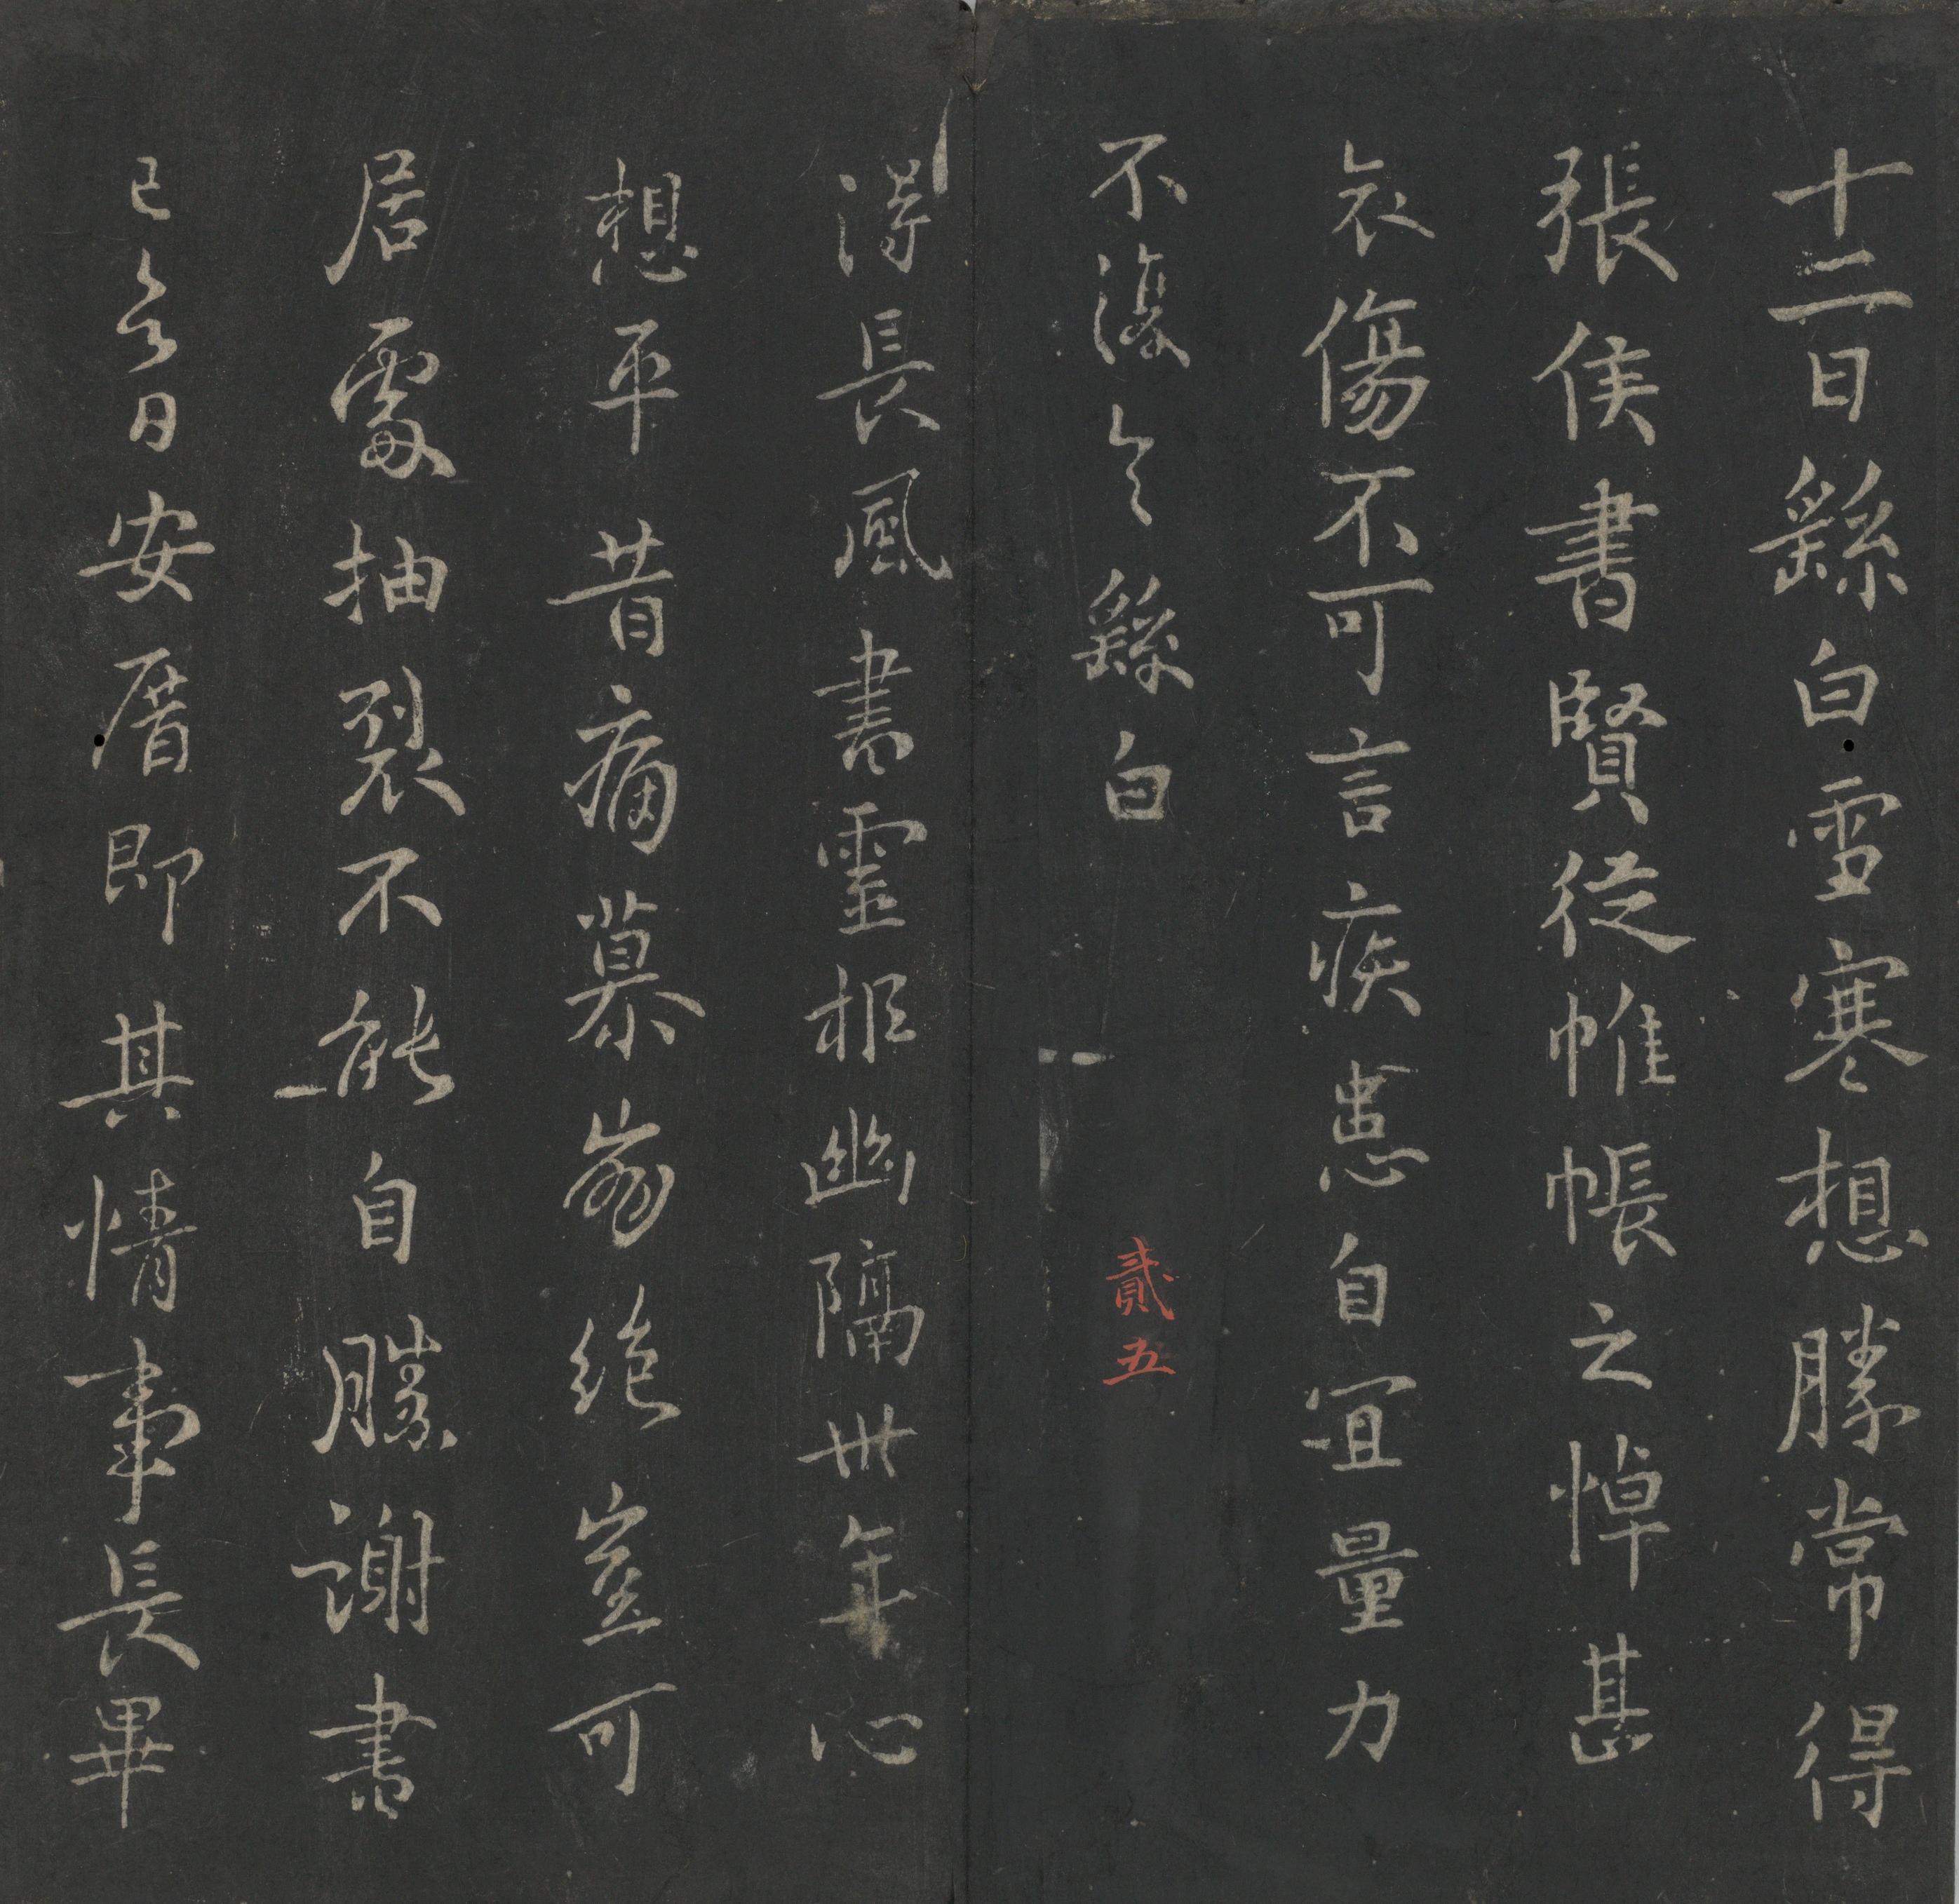 十二日繇白雪寒想勝常得
張侯書賢從帷帳之悼甚
哀傷不可言疾患自宜量力
不復繇白
貳五
得長風書靈柩幽隔卅年心
想平昔痛慕崩絕豈可
居處抽裂不能自勝謝書
已日安厝即其情事長畢